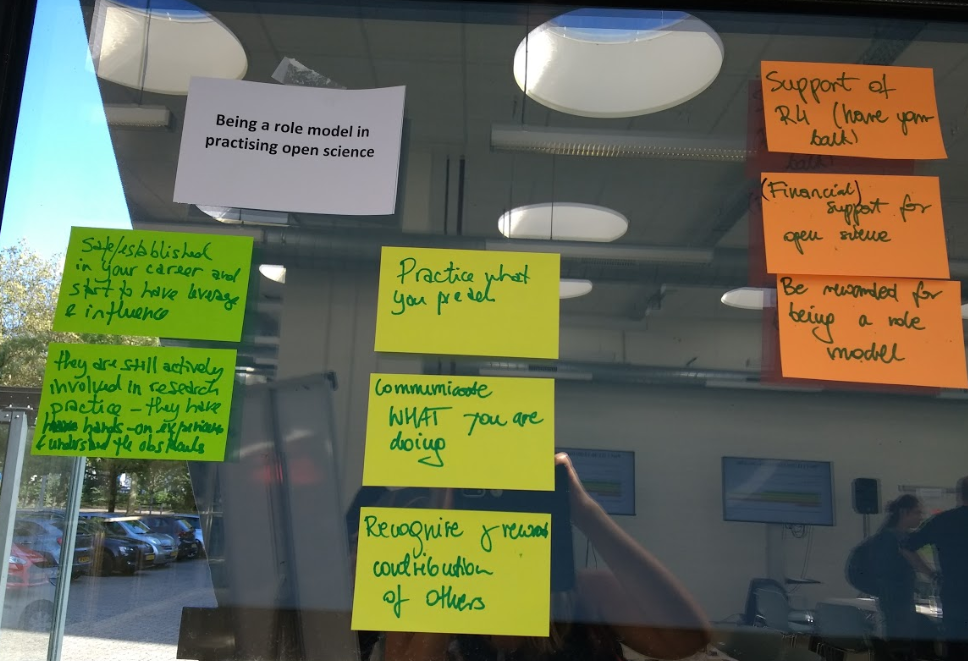 Being a role model in
practising open science
Safe/established
in your career and
start to have leverage
& influence
they are still actively
involved in research
practice - they have
hands-on experience
& understand the obstacls
Practice what
you preach
Communicate
WHAT you are
doing
Recognise & reward
contribution
of others
Support of
R4 (have your
back)
(Financial)
support for
open science
Be rewarded for
being a role
model